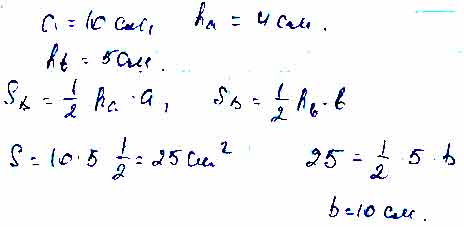 a = 10 см, hₐ = 4 см.
h_b = 5 см.
S_Δ = 1/2 hₐ · a, S_Δ = 1/2 h_b · b
S = 10 · 5 1/2 = 25 см² 25 = 1/2 · 5 · b
b = 10 см.